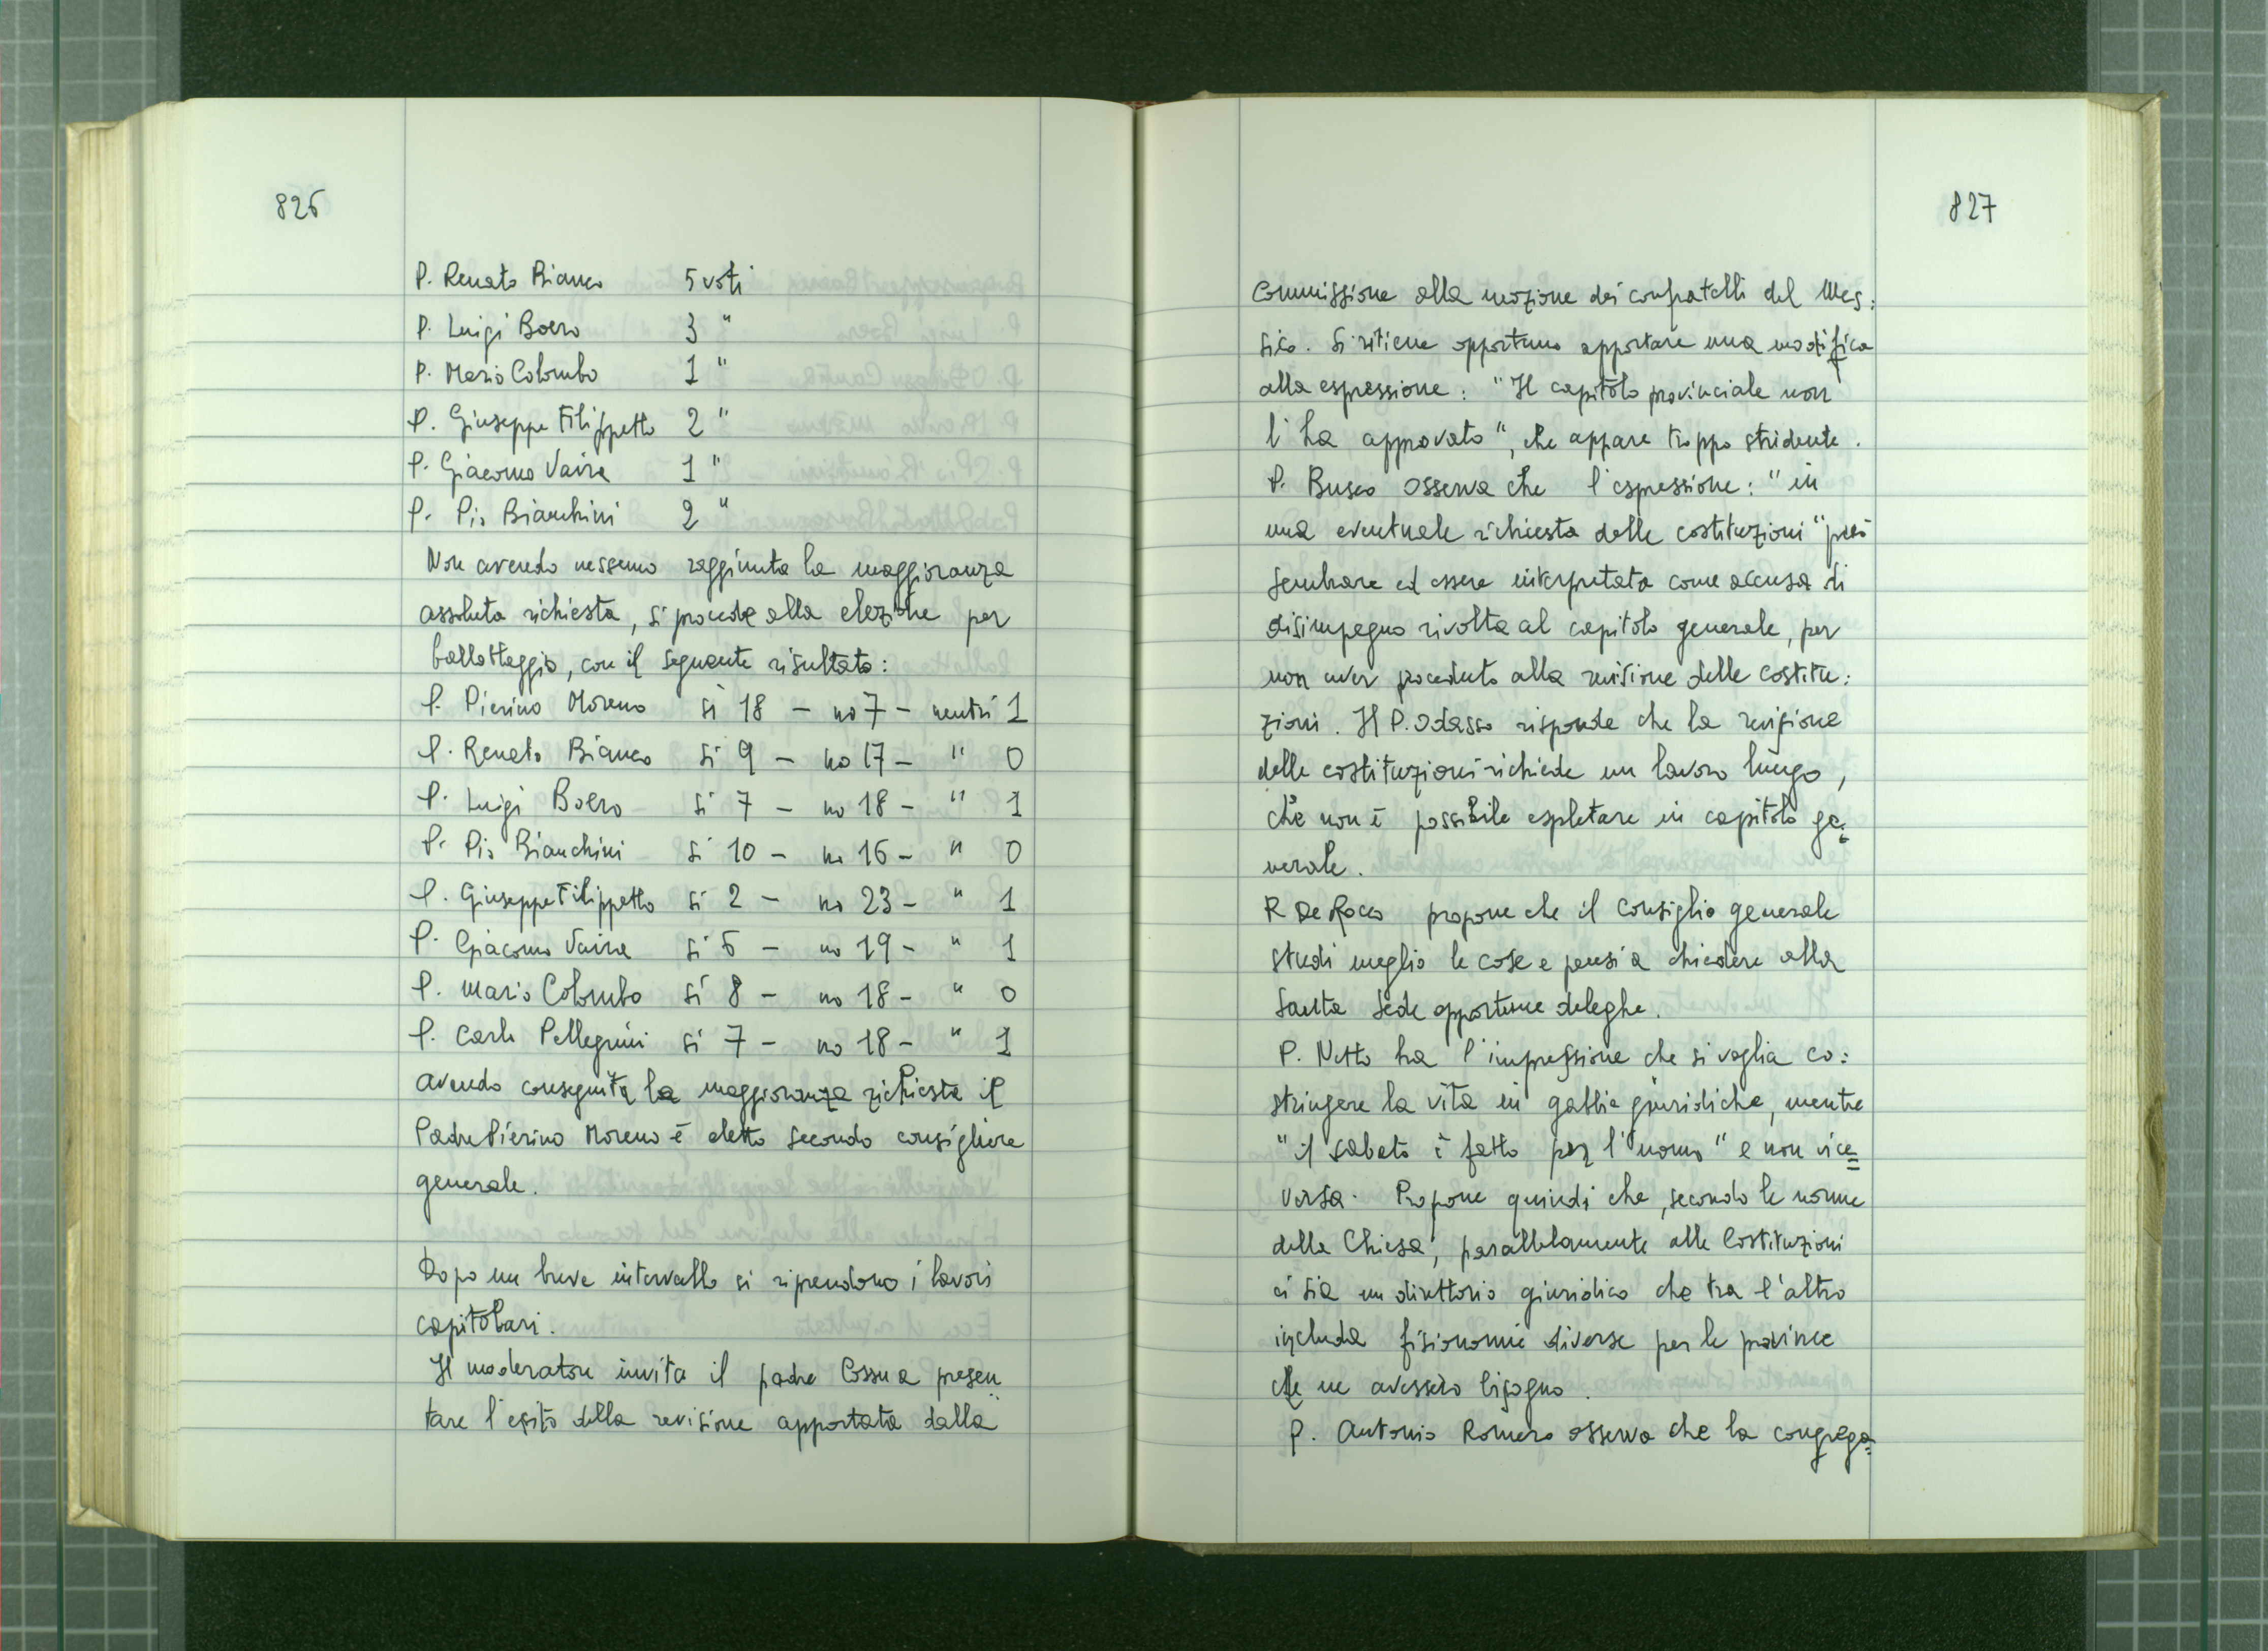 826
P. Renato Bianco 5 voti
P. Luigi Boero 3 "
P. Mario Colombo 1 "
P. Giuseppe Filippetto 2 "
P. Giacomo Vaira 1 "
P. Pio Bianchini 2 "
Non avendo nessuno raggiunta la maggioranza
assoluta richiesta, si procede alla elezione per
ballottaggio, con il seguente risultato:
P. Pierino Moreno si 18 - no 7 - neutri 1
P. Renato Bianco si 9 - no 17 - " 0
P. Luigi Boero si 7 - no 18 - " 1
P. Pio Bianchini si 10 - no 16 - " 0
P. Giuseppe Filippetto si 2 - no 23 - " 1
P. Giacomo Vaira si 6 - no 19 - " 1
P. Mario Colombo si 8 - no 18 - " 0
P. Carlo Pellegrini si 7 - no 18 - " 1
Avendo conseguita la maggioranza richiesta il
Padre Pierino Moreno è eletto secondo consigliere
generale.
Dopo un breve intervallo si riprendono i lavori
capitolari.
Il moderatore invita il padre Cossu a presen
tare l'esito della revisione apportata dalla
827
Commissione alla mozione dei confratelli del Mes:
sico. Si ritiene opportuno apportare una modifica
alla espressione: "Il capitolo provinciale non
l'ha approvato", che appare troppo stridente.
P. Busco osserva che l'espressione: "in
una eventuale richiesta delle costituzioni" può
sembrare ed essere interpretata come accusa di
disimpegno rivolta al capitolo generale, per
non aver proceduto alla revisione delle costitu:
zioni. Il P. Odasso risponde che la revisione
delle costituzioni richiede un lavoro lungo,
che non è possibile espletare in capitolo ge=
nerale.
P. De Rocco propone che il Consiglio generale
studi meglio le cose e pensi a chiedere alla
Santa Sede opportune deleghe.
P. Netto ha l'impressione che si voglia co:
stringere la vita in gabbie giuridiche, mentre
"il sabato è fatto per l'uomo" e non vice=
versa. Propone quindi che, secondo le norme
della Chiesa, parallelamente alle Costituzioni
ci sia un direttorio giuridico che tra l'altro
includa fisionomie diverse per le province
che ne avessero bisogno.
P. Antonio Romero osserva che la congrega=